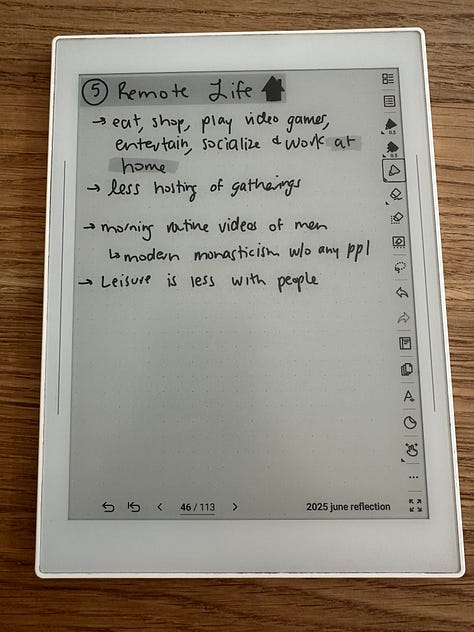 ⑤ Remote Life
→ eat, shop, play video games,
entertain, socialize & work at
home
→ less hosting of gatherings
→ morning routine videos of men
↳ modern monasticism w/o any ppl
→ Leisure is less with people
0.5
0.5
46 / 113
2025 june reflection